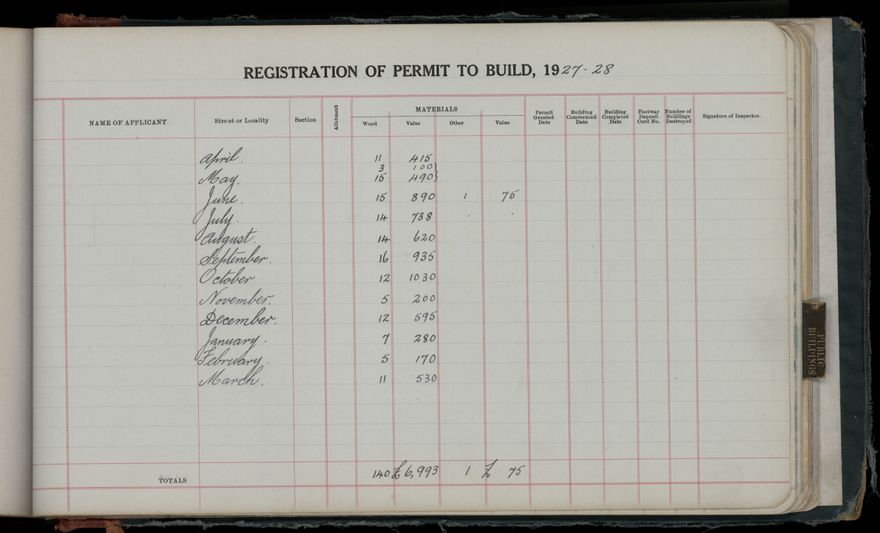 REGISTRATION OF PERMIT TO BUILD, 1927-28
NAME OF APPLICANT Street or Locality Section Allotment MATERIALS Wood Value Other Value Permit Granted Date Building Commenced Date Building Completed Date Footway Deposit Card No. Number of Buildings Destroyed Signature of Inspector.
April. 11 415
3 100
May. 15 490
June. 15 890 1 75
July. 14 738
August. 14 620
September. 16 935
October 12 1030
November. 5 200
December. 12 595
January. 7 280
February. 5 170
March. 11 530
TOTALS 140 £6,993 1 £ 75
PUBLIC
BUILDINGS